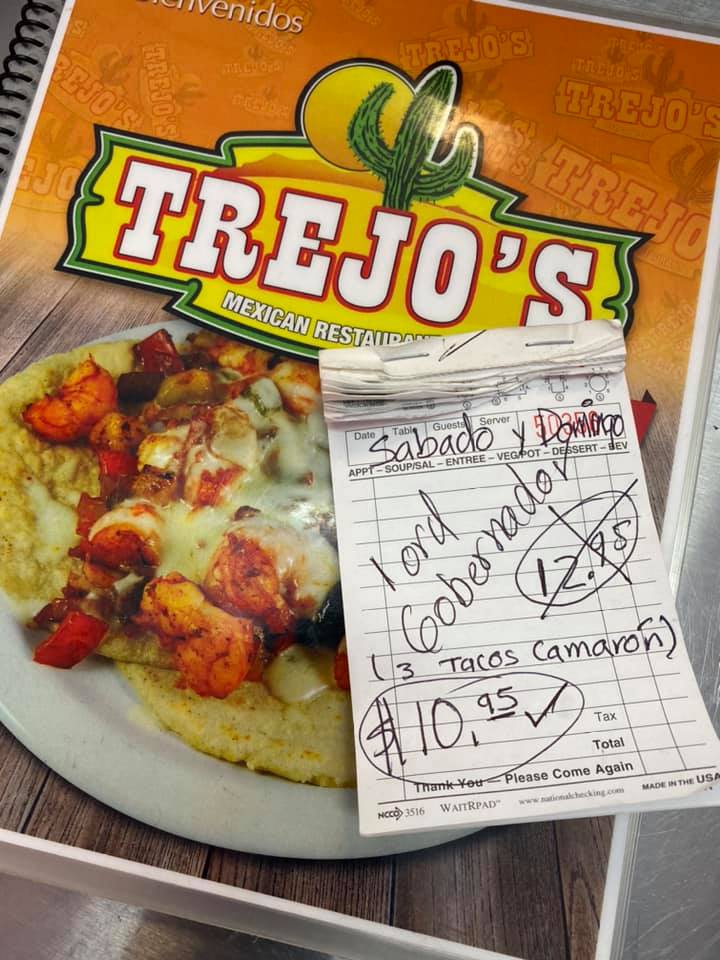 Bienvenidos
TREJO'S
TREJO'S
TREJO'S
TREJO'S
TREJO
TREJO'S
MEXICAN RESTAURAN
Date Table Guests Server
Sabado y Domingo
APPT - SOUP/SAL - ENTREE - VEG/POT - DESSERT - BEV
1 ord
Gobernador
12.95
( 3 TACOS Camarón)
$10.95 ✓
Tax
Total
Thank You — Please Come Again
NCCO 3516 WAITRPAD™ www.nationalchecking.com MADE IN THE USA